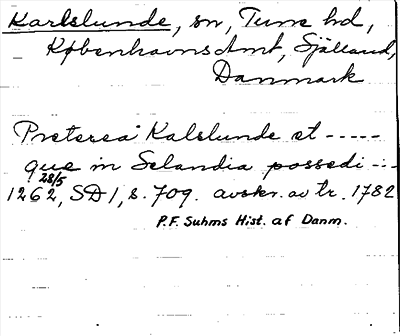 Karlslunde, sn, Tune hd,
Københavns Amt, Sjælland,
Danmark
Preterea Kalslunde et -----
que in Selandia possedi ---
28/5
1262, SD 1, s. 709. avskr. av tr. 1782
P.F. Suhms Hist. af Danm.